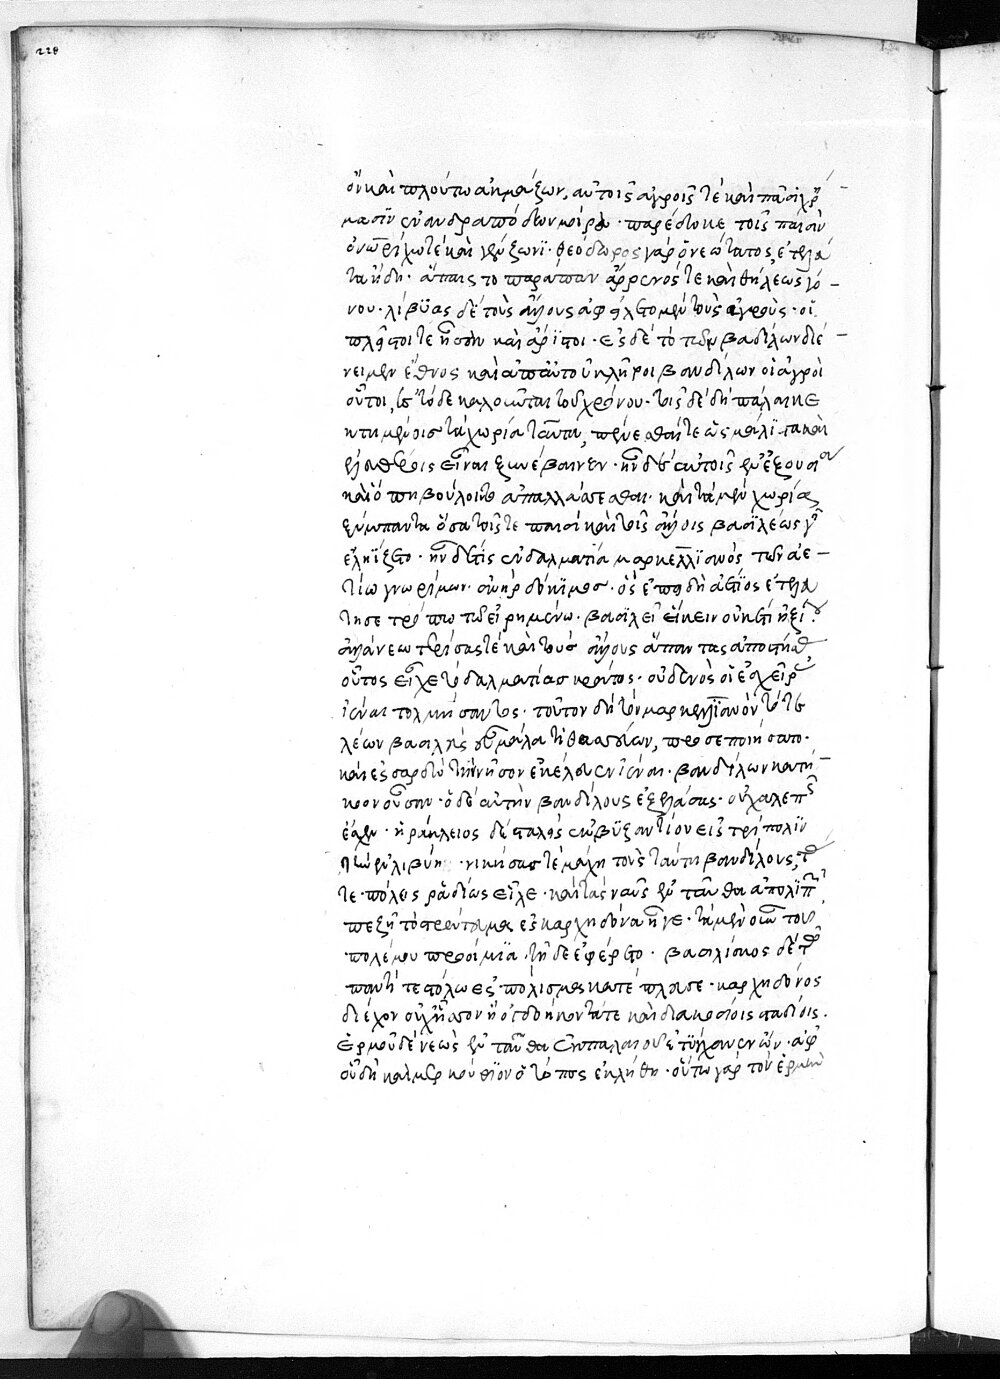 228
ὂν καὶ πλούτω ἀκμάζων, αὐτοῖς ἀγροῖς τὲ καὶ πᾶσι χρή
μασιν ἐν ἀνδραπόδων μοίρα · παρέδωκε τοῖς παισὶν
ὀνωρίχω τὲ καὶ γενζωνι · θεόδωρος γὰρ ὁ νεώτατος ἐτελεύ
τα ἤδη · ἄπαις τὸ παράπαν ἄρρενός τε καὶ θήλεως γό
νου · λίβυας δὲ τοὺς ἄλλους ἀφείλετο μὲν τοὺς ἀγροὺς · οἳ
πλεῖστοί τε ἦσαν καὶ ἄριστοι · ἐς δὲ τὸ τῶν βανδίλων διέ
νειμεν ἔθνος καὶ ἀπ' αὐτοῦ κλῆροι βανδίλων οἱ ἀγροὶ
οὗτοι, ἐς τόδε καλοῦνται τοῦ χρόνου · τοῖς δὲ δὴ πάλαι κε
κτημένοις τὰ χωρία ταῦτα, πένεσθαί τε ὡς μάλιστα καὶ
ἐλευθέροις εἶναι ξυνέβαινεν · ἦν δὲ αὐτοῖς ἐν ἐξουσία
καὶ ὅπη βούλοιντο ἀπαλλάσσεσθαι · καὶ τὰ μὲν χωρία
ξύμπαντα ὅσα τοῖς τε παισὶ καὶ τοῖς ἄλλοις βανδίλοις γι
ἦν δέ τις ἐν δαλματία μαρκελλιανὸς τῶν ἀε
τίω γνωρίμων · ἀνὴρ δόκιμος · ὃς ἐπειδὴ ἀέτιος ἐτελεύ
τησε τρόπω τῶ εἰρημένω · βασιλεῖ εἴκειν οὐκέτι ἠξίου ·
ἀλλὰ νεωτερίσας τὲ καὶ τοὺς ἄλλους ἅπαντας ἀποστήσας
οὗτος εἶχε τὸ δαλματίας κράτος · οὐδενὸς οἱ ἐς χεῖρας
ἰέναι τολμήσαντος · τοῦτον δὴ τὸν μαρκελλιανὸν τότε
λέων βασιλεὺς εὖ μάλα τιθασσεύων, προσεποιήσατο ·
καὶ ἐς σαρδὼ τὴν νῆσον ἐκέλευεν ἰέναι · βανδίλων κατή
κοον οὖσαν · ὁ δὲ αὐτὴν βανδίλους ἐξελάσας · οὐ χαλεπῶς
ἔσχεν · ἡράκλειος δὲ σταλεὶς ἐκ βυζαντίου εἰς τρίπολιν
τὴν ἐν λιβύη · νικήσας τὲ μάχη τοὺς ταύτη βανδίλους, τάς
τε πόλεις ῥαδίως εἷλε · καὶ τὰς ναῦς ἐνταῦθα ἀπολιπὼν,
πεζῆ τὸ στράτευμα ἐς καρχηδόνα ἦγε · τὰ μὲν οὖν τοῦ
πολέμου προοίμια τῆδε ἐφέρετο · βασιλίσκος δὲ τῶ
παντὶ στόλω ἐς πόλισμα κατέπλευσε · καρχηδόνος
διέχον οὐχ ἧσσον ἢ ὀγδοήκοντά τε καὶ διακοσίοις σταδίοις ·
ἑρμοῦ δὲ νεὼς ἐνταῦθα ἐκ παλαιοῦ ἐτύγχανεν ὢν · ἀφ'
οὗ δὴ καὶ μερκούριον ὁ τόπος ἐκλήθη · οὕτω γὰρ τὸν ἑρμῆν